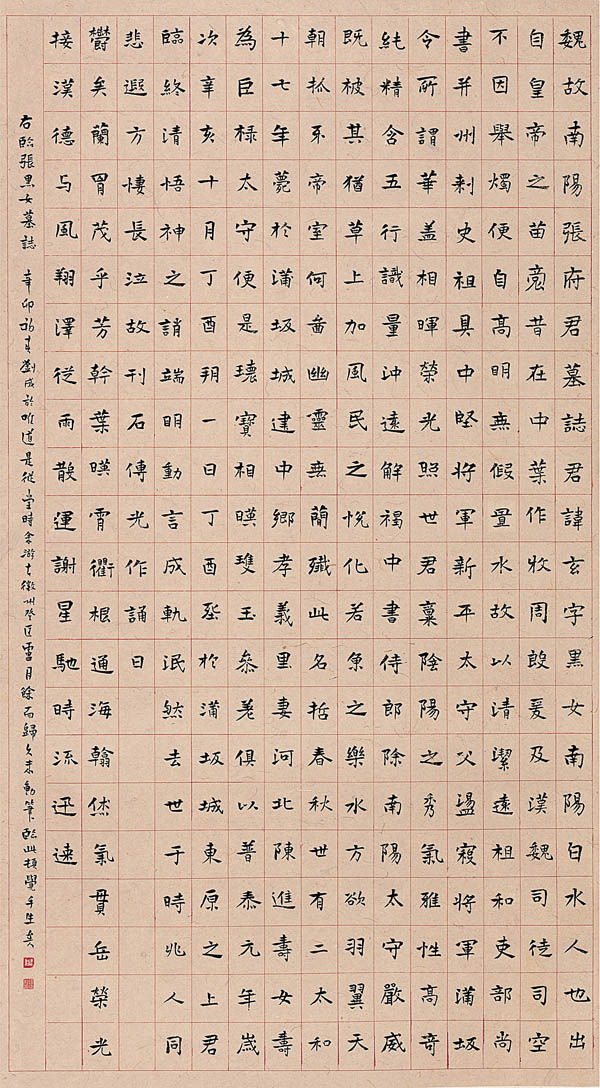 魏故南陽張府君墓誌君諱玄字黑女南陽白水人也出
自皇帝之苗裔昔在中葉作牧周殷爰及漢魏司徒司空
不因舉燭便自高明無假置水故以清潔遠祖和吏部尚
書并州刺史祖具中堅將軍新平太守父盪寇將軍蒲坂
令所謂華盖相暉榮光照世君稟陰陽之秀氣雅性高奇
純精含五行識量沖遠解褐中書侍郎除南陽太守嚴威
既被其猶草上加風民之悅化若魚之樂水方欲羽翼天
朝抓牙帝室何啚幽靈無簡殲此名哲春秋世有二太和
十七年薨於蒲坂城建中鄉孝義里妻河北陳進壽女壽
為巨禄太守便是瓌寶相暎瓊玉參差俱以普泰元年歲
次辛亥十月丁酉朔一日丁酉塟於蒲坂城東原之上君
臨終清悟神之誚端明動言成軌泯然去世于時兆人同
悲遐方悽長泣故刊石傳光作誦曰
欝矣蘭冑茂乎芳幹葉暎霄衢根通海翰烋氣貫岳榮光
接漢德与風翔澤從雨散運謝星馳時流迅速
右臨張黑女墓誌 辛卯初春劉成於唯道是從堂時余游古徽州月餘而歸久未動筆臨此頓覺手生矣